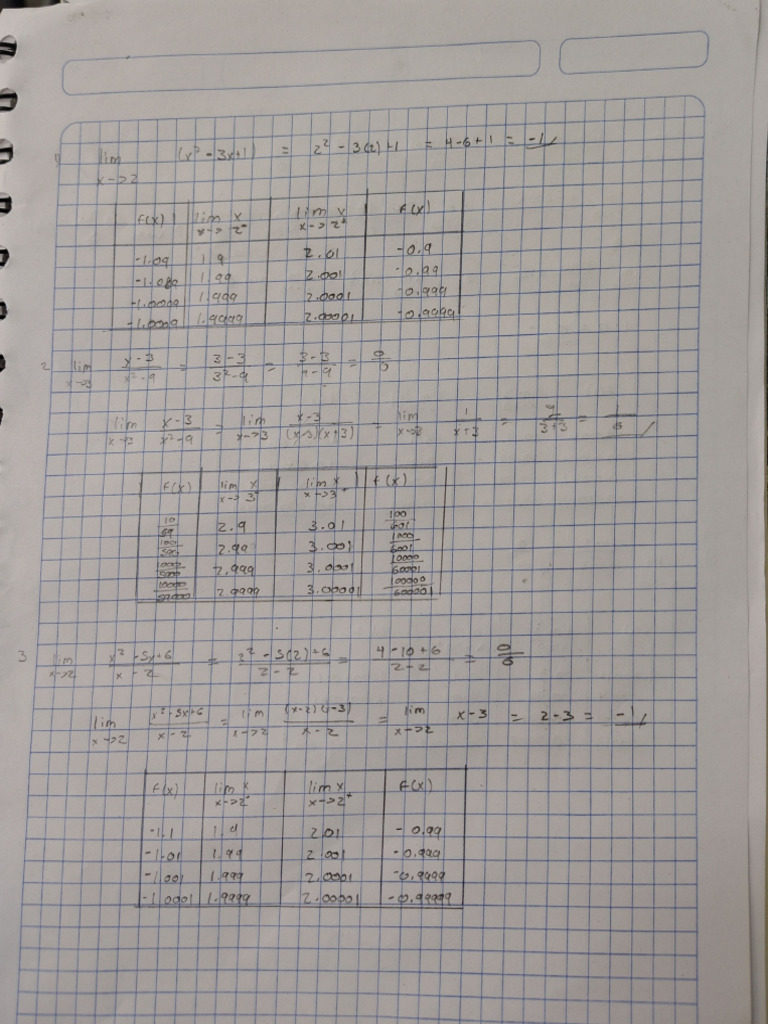 1) lim x->2 (x² - 3x+1) = 2² - 3(2)+1 = 4-6+1 = -1
f(x) | lim x x->2⁻ | lim x x->2⁺ | f(x)
-1.09 | 1.9 | 2.01 | -0.9
-1.089 | 1.99 | 2.001 | -0.99
-1.0009 | 1.999 | 2.0001 | -0.999
-1.0009 | 1.9999 | 2.00001 | -0.9999
2 lim x->3 x-3/x²-9 = 3-3/3²-9 = 3-3/9-9 = 0/0
lim x->3 x-3/x²-9 = lim x->3 x-3/(x-3)(x+3) = lim x->3 1/x+3 = /3+3 = 1/6
f(x) | lim x x->3⁻ | lim x x->3⁺ | f(x)
10/59 | 2.9 | 3.01 | 100/601
100/ | 2.99 | 3.001 | 1000/6001
1000/ | 2.999 | 3.0001 | 10000/60001
10000/ | 2.9999 | 3.00001 | 100000/
3 lim x->2 x² -5x+6/x-2 = 2² -5(2)+6/2-2 = 4-10+6/2-2 = 0/0
lim x->2 x²-5x+6/x-2 = lim x->2 (x-2)(x-3)/x-2 = lim x->2 x-3 = 2-3 = -1
f(x) | lim x x->2⁻ | lim x x->2⁺ | f(x)
-1.1 | 1.9 | 2.01 | -0.99
-1.01 | 1.99 | 2.001 | -0.999
-1.001 | 1.999 | 2.0001 | -0.9999
-1.0001 | 1.9999 | 2.00001 | -0.99999